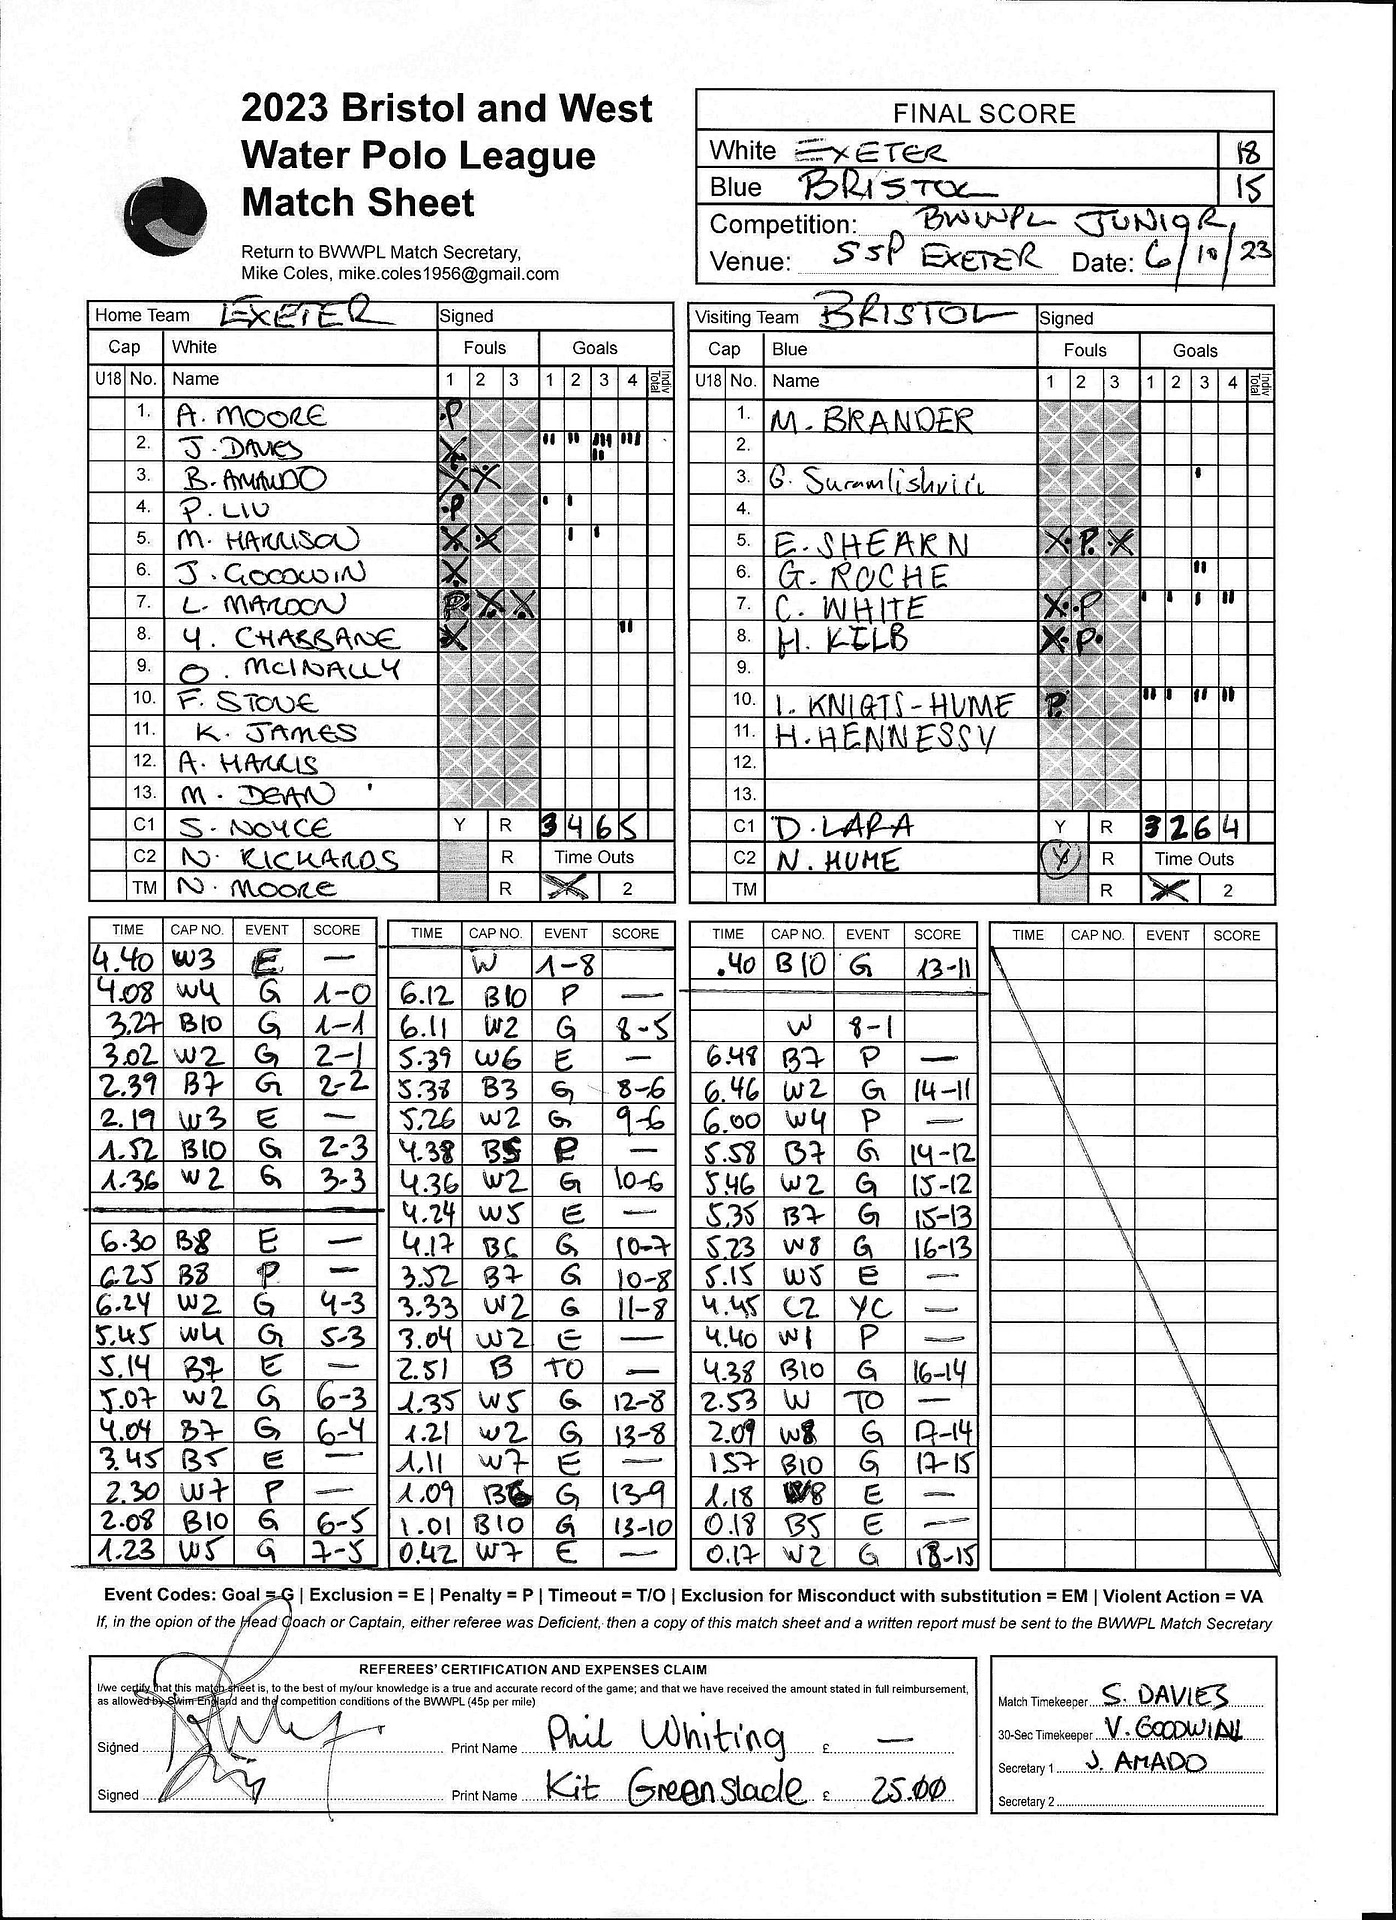 2023 Bristol and West
Water Polo League
Match Sheet
Return to BWWPL Match Secretary,
Mike Coles, mike.coles1956@gmail.com
FINAL SCORE
White EXETER 18
Blue BRISTOL 15
Competition: BWWPL JUNIOR
Venue: SSP EXETER Date: 6/10/23
Home Team EXETER Signed
Cap White Fouls Goals
U18 No. Name 1 2 3 1 2 3 4 Indiv Total
1. A. MOORE P
2. J. DAVIES X
3. B. AMADO X X
4. P. LIU P
5. M. HARRISON X X
6. J. GOODWIN X
7. L. MAROON P X X
8. Y. CHABBANE X
9. O. MCINALLY
10. F. STONE
11. K. JAMES
12. A. HARRIS
13. M. DEAN
C1 S. NOYCE Y R 3 4 6 5
C2 N. RICKARDS R Time Outs
TM N. MOORE R X 2
Visiting Team BRISTOL Signed
Cap Blue Fouls Goals
U18 No. Name 1 2 3 1 2 3 4 Indiv Total
1. M. BRANDER
2.
3. G. Suramlishvili
4.
5. E. SHEARN X P X
6. G. ROCHE
7. C. WHITE X P
8. H. KILB X P
9.
10. I. KNIGTS-HUME P
11. H. HENNESSY
12.
13.
C1 D. LARA Y R 3 2 6 4
C2 N. HUME Y R Time Outs
TM R X 2
TIME CAP NO. EVENT SCORE
4.40 W3 E —
4.08 W4 G 1-0
3.27 B10 G 1-1
3.02 W2 G 2-1
2.39 B7 G 2-2
2.19 W3 E —
1.52 B10 G 2-3
1.36 W2 G 3-3
6.30 B8 E —
6.25 B8 P —
6.24 W2 G 4-3
5.45 W4 G 5-3
5.14 B7 E —
5.07 W2 G 6-3
4.04 B7 G 6-4
3.45 B5 E —
2.30 W7 P —
2.08 B10 G 6-5
1.23 W5 G 7-5
TIME CAP NO. EVENT SCORE
W 1-8
6.12 B10 P —
6.11 W2 G 8-5
5.39 W6 E —
5.38 B3 G 8-6
5.26 W2 G 9-6
4.38 B5 P —
4.36 W2 G 10-6
4.24 W5 E —
4.17 B6 G 10-7
3.52 B7 G 10-8
3.33 W2 G 11-8
3.04 W2 E —
2.51 B TO —
1.35 W5 G 12-8
1.21 W2 G 13-8
1.11 W7 E —
1.09 B6 G 13-9
1.01 B10 G 13-10
0.42 W7 E —
TIME CAP NO. EVENT SCORE
.40 B10 G 13-11
W 8-1
6.48 B7 P —
6.46 W2 G 14-11
6.00 W4 P —
5.58 B7 G 14-12
5.46 W2 G 15-12
5.35 B7 G 15-13
5.23 W8 G 16-13
5.15 W5 E —
4.45 C2 YC —
4.40 W1 P —
4.38 B10 G 16-14
2.53 W TO —
2.09 W8 G 17-14
157 B10 G 17-15
1.18 W8 E —
0.18 B5 E —
0.17 W2 G 18-15
TIME CAP NO. EVENT SCORE
Event Codes: Goal = G | Exclusion = E | Penalty = P | Timeout = T/O | Exclusion for Misconduct with substitution = EM | Violent Action = VA
If, in the opion of the Head Coach or Captain, either referee was Deficient, then a copy of this match sheet and a written report must be sent to the BWWPL Match Secretary
REFEREES' CERTIFICATION AND EXPENSES CLAIM
I/we certify that this match sheet is, to the best of my/our knowledge is a true and accurate record of the game; and that we have received the amount stated in full reimbursement,
as allowed by Swim England and the competition conditions of the BWWPL (45p per mile)
Signed Print Name Phil Whiting £ —
Signed Print Name Kit Greenslade £ 25.00
Match Timekeeper S. DAVIES
30-Sec Timekeeper V. GOODWIN
Secretary 1 J. AMADO
Secretary 2